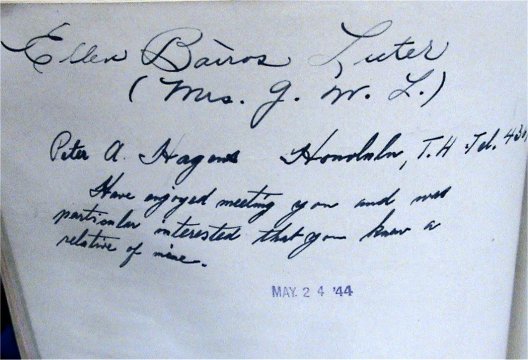 Ellen Bairos Luter
(Mrs. G. W. L.)
Peter A. Honolulu, T.H. Tel.
Have enjoyed meeting you and was
particular interested that you knew a
relative of mine.
MAY. 24 '44